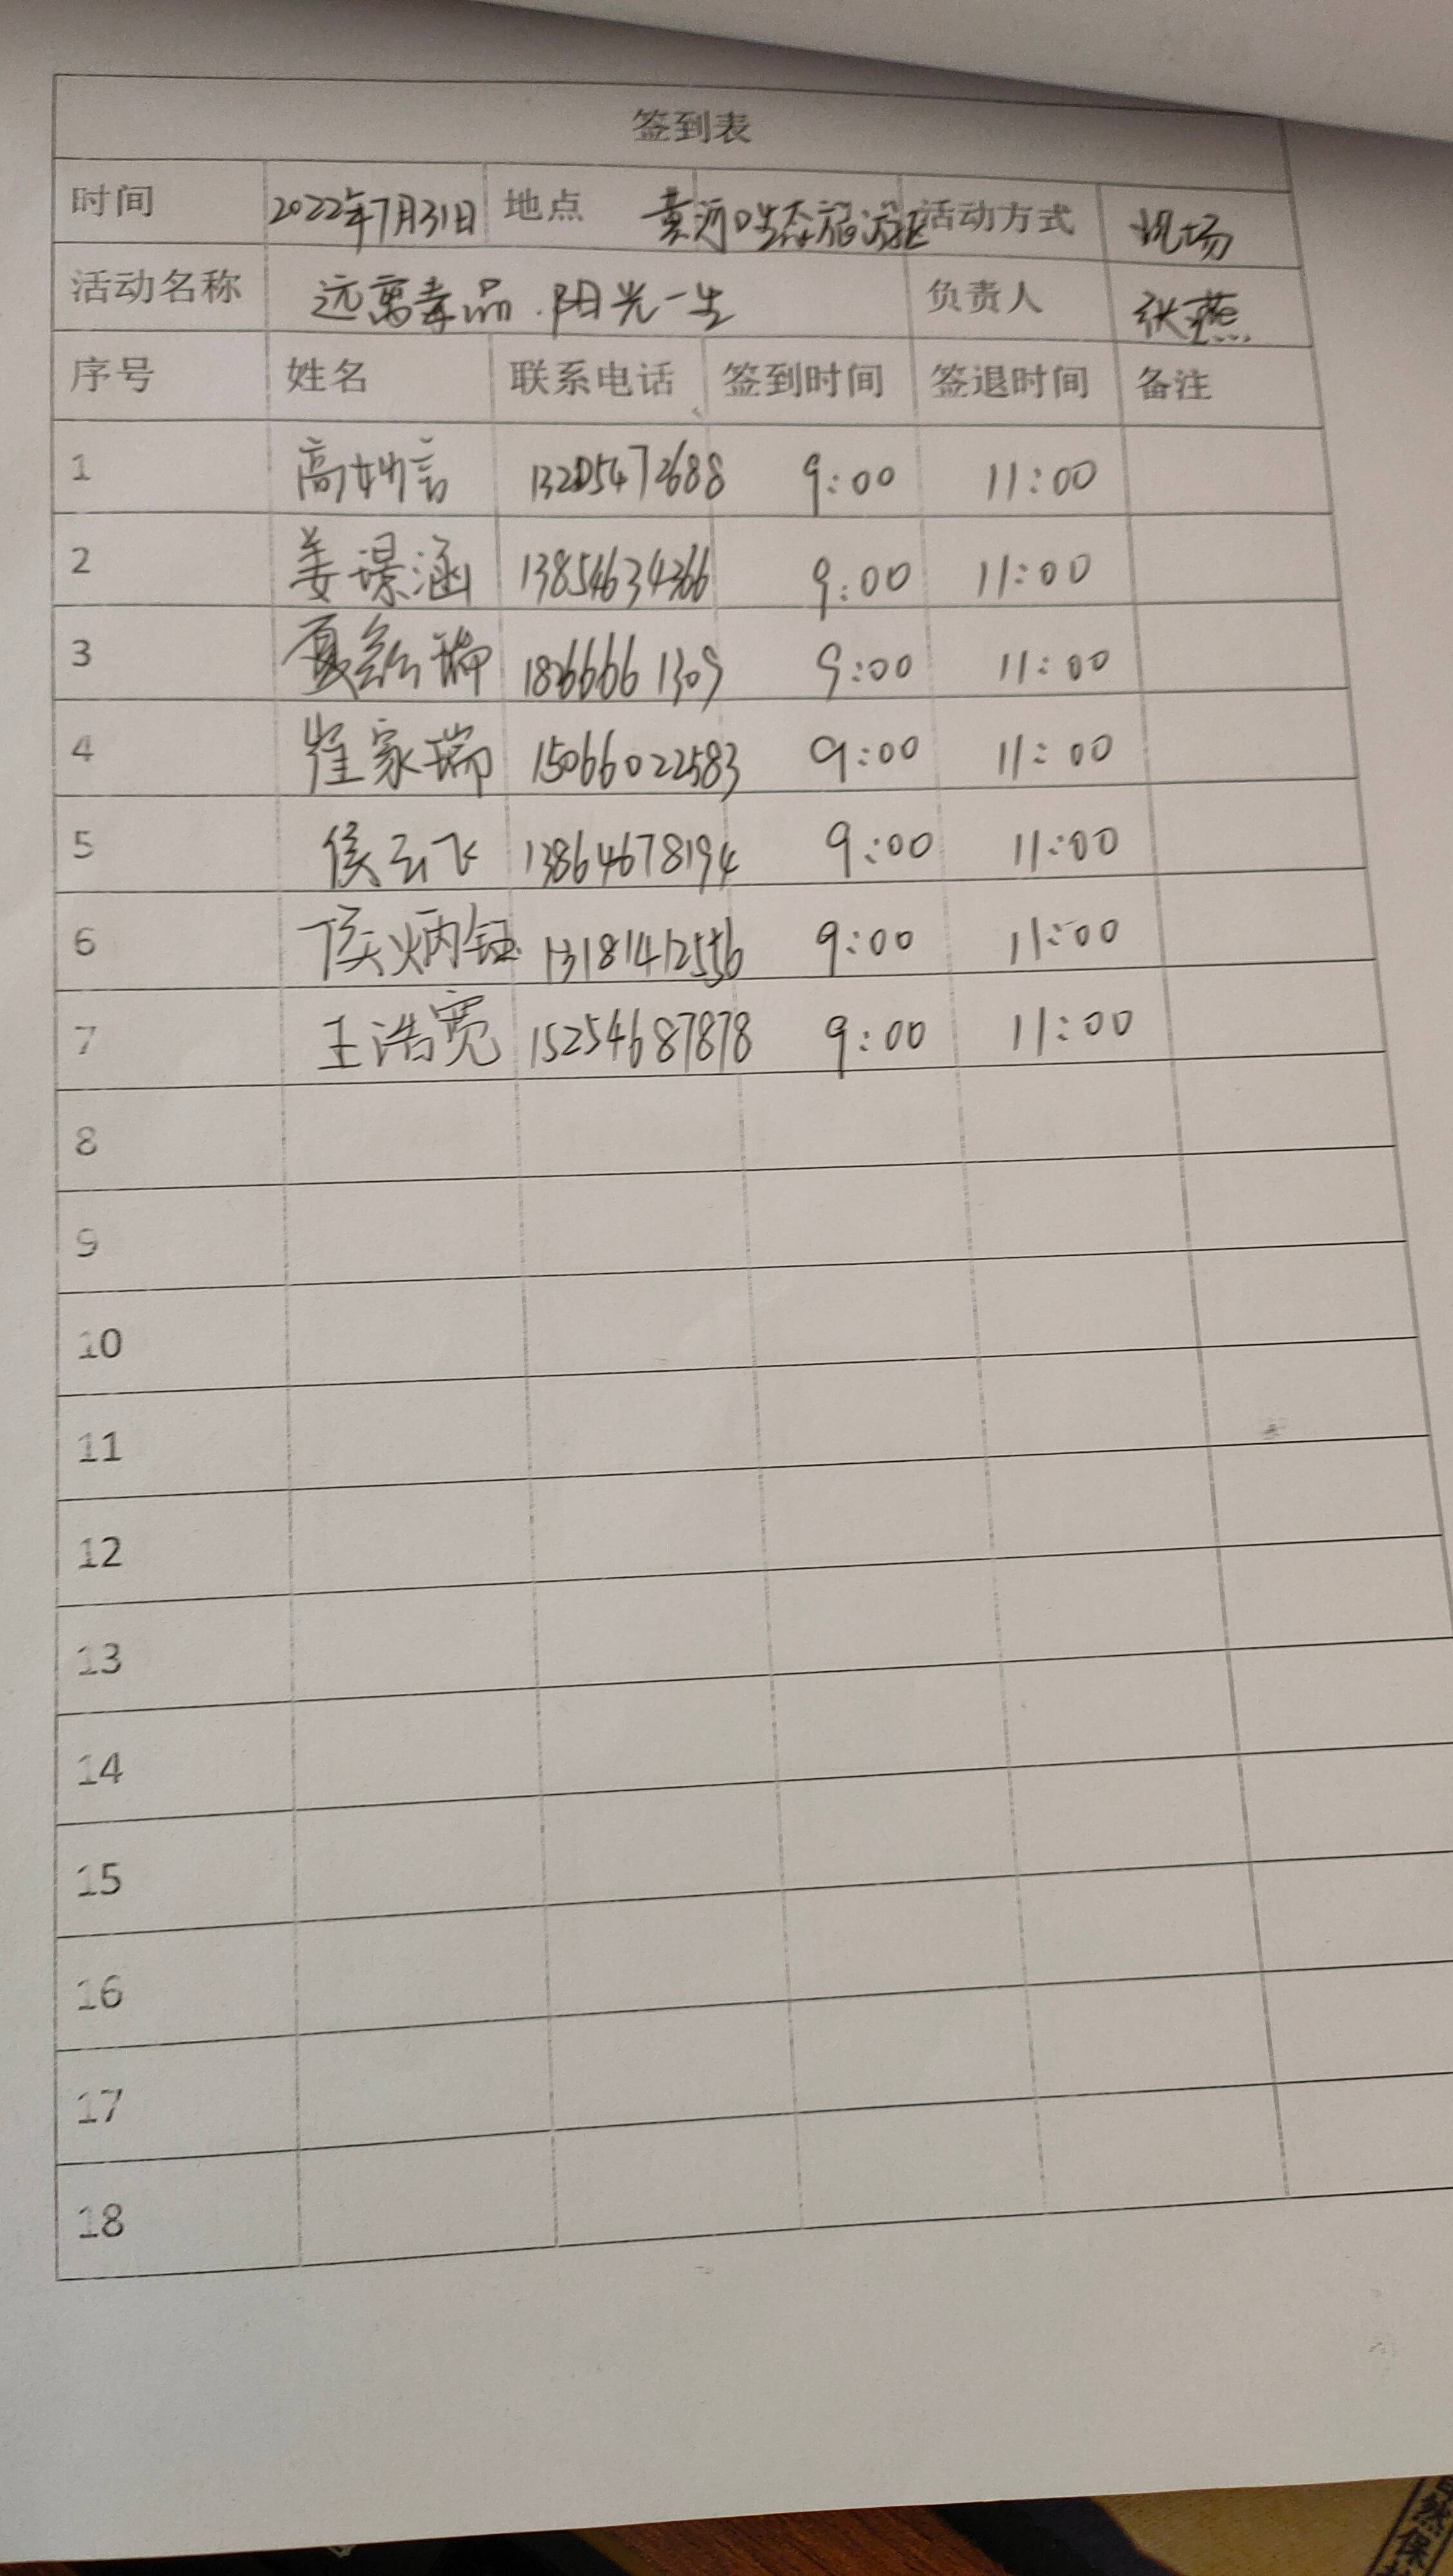 签到表
时间 2022年7月31日 地点 黄河口生态旅游区 活动方式 现场
活动名称 远离毒品.阳光一生 负责人 张燕
序号 姓名 联系电话 签到时间 签退时间 备注
1 高妙言 13205472688 9:00 11:00
2 姜璟涵 13854634366 9:00 11:00
3 夏绘瑞 18266661309 9:00 11:00
4 崔家瑞 15066022583 9:00 11:00
5 侯云飞 13864678194 9:00 11:00
6 侯炳钰 13181412556 9:00 11:00
7 王浩宽 15254687878 9:00 11:00
8
9
10
11
12
13
14
15
16
17
18
然保